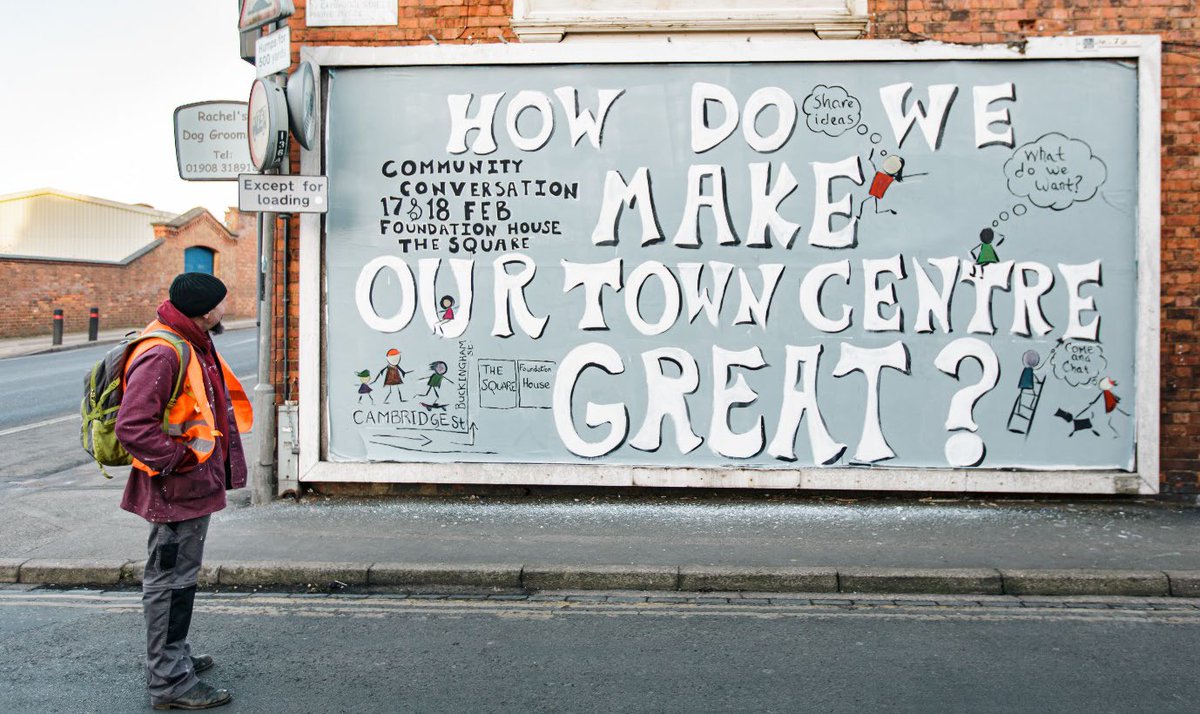 Humps for
500 yards
Rachel's
Dog Groom
Tel:
01908 31891
Except for
loading
HOW DO WE
MAKE
OUR TOWN CENTRE
GREAT?
COMMUNITY
CONVERSATION
17 & 18 FEB
FOUNDATION HOUSE
THE SQUARE
Share
ideas
What do
we
want?
Come and
Chat
CAMBRIDGE St
BUCKINGHAM
St
THE
SQUARE
Foundation
House